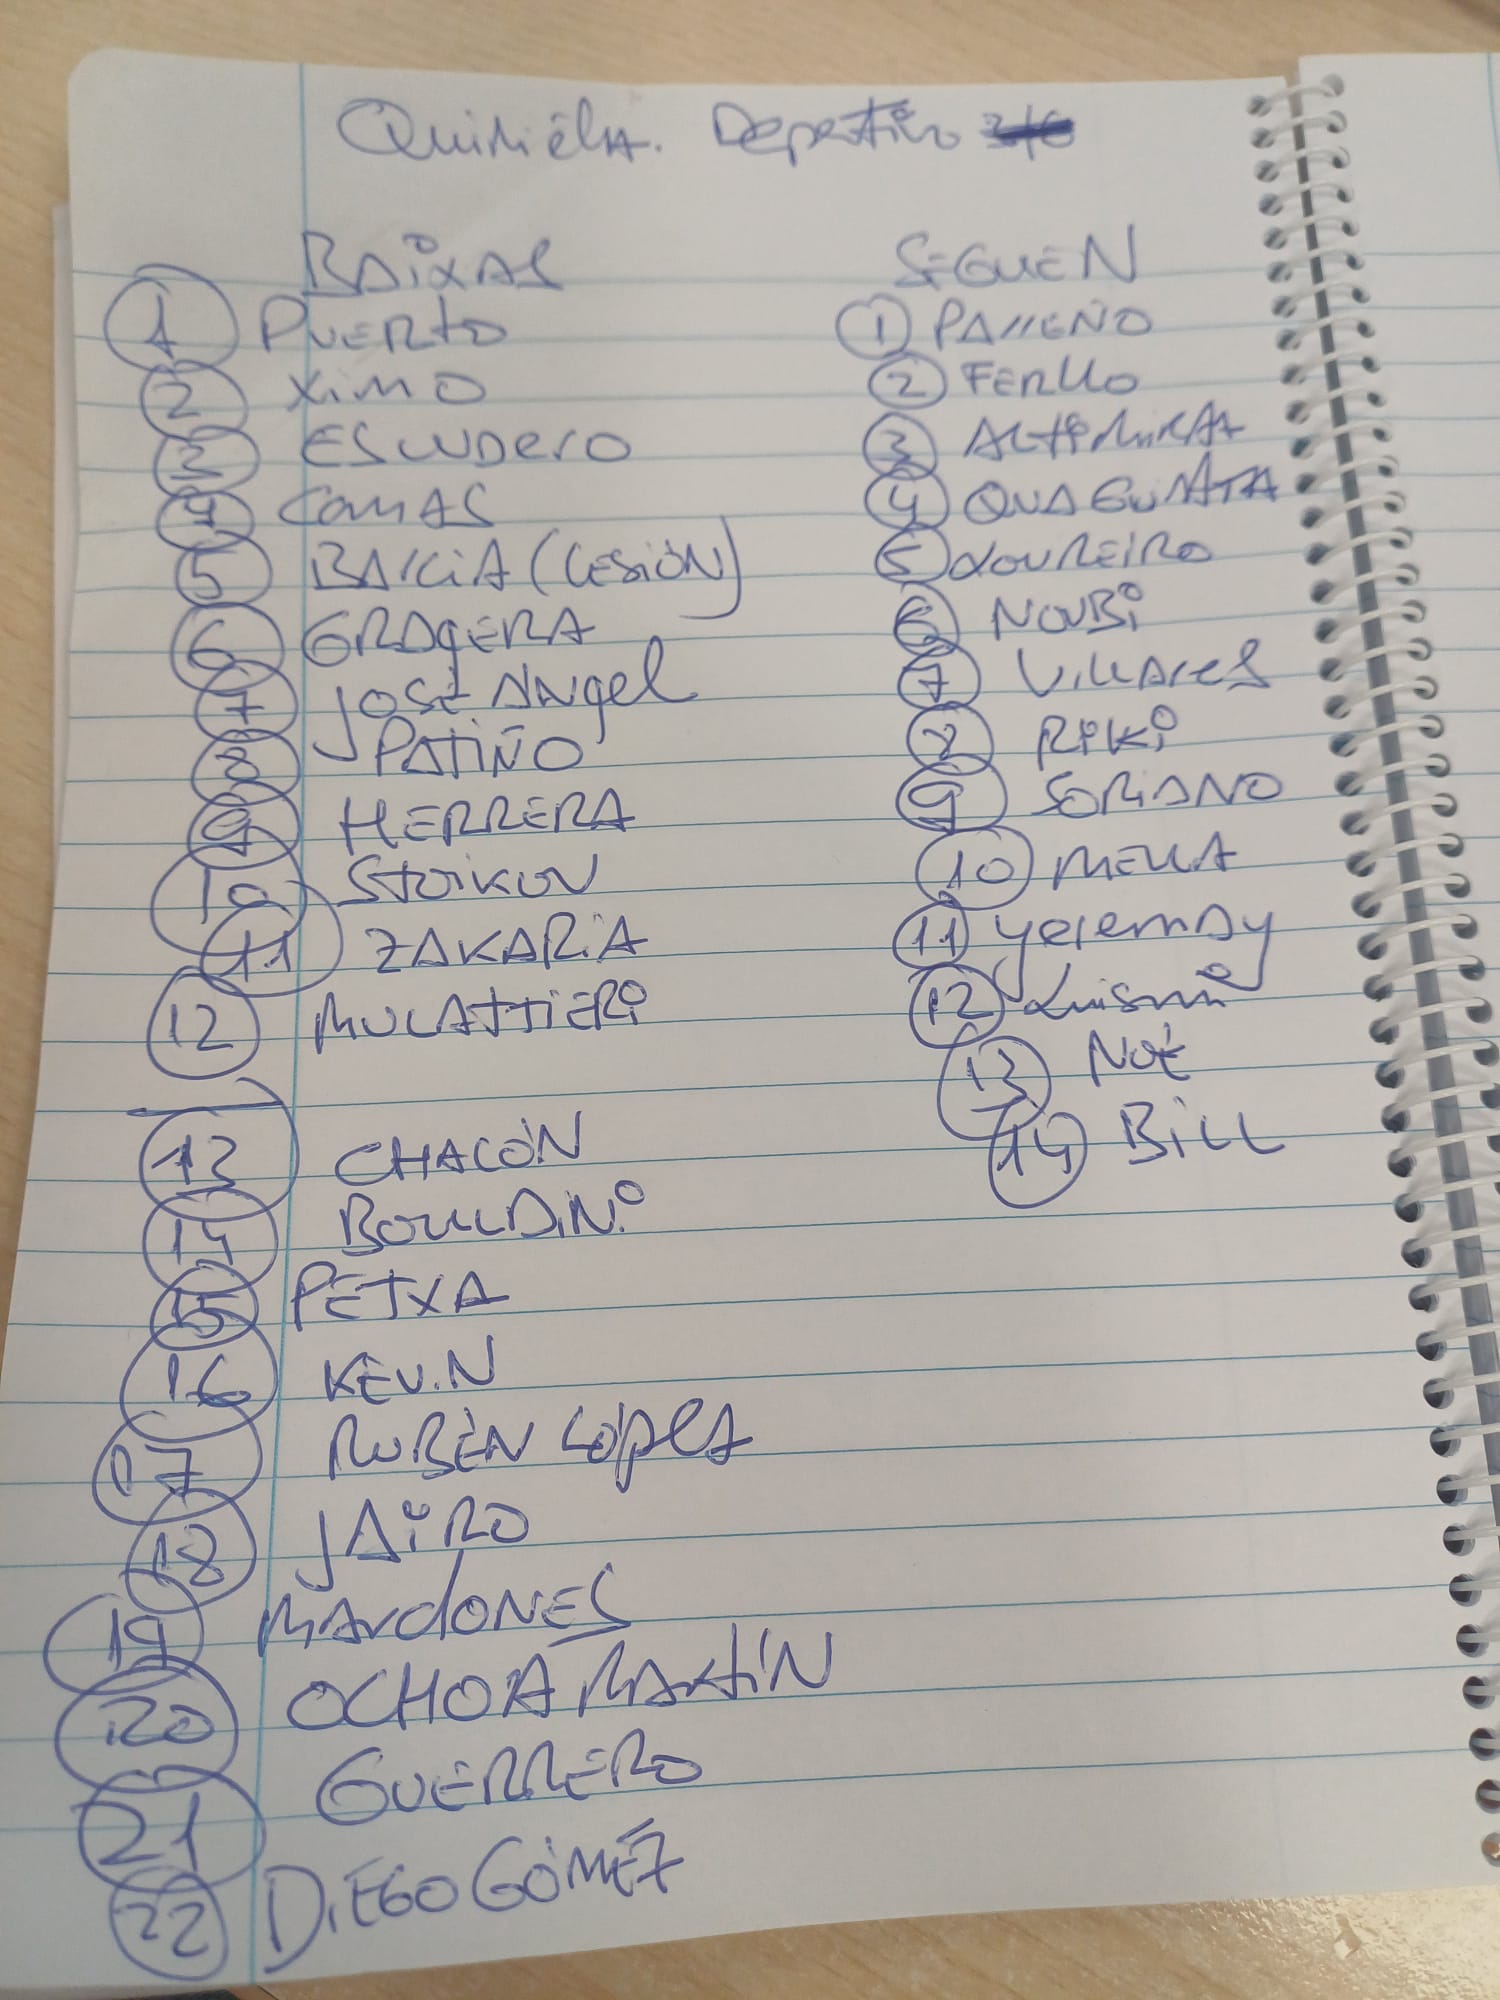 Quiniela. Deportivo
BAIXAS
1 PUERTO
2 XIMO
3 ESCUDERO
4 COMAS
5 BARCIA (CESIÓN)
6 GRAGERA
7 JOSÉ ANGEL
8 PATIÑO
9 HERRERA
10 STOIKOV
11 ZAKARIA
12 MULATTIERI
13 CHACÓN
14 BOULDINI
15 PETXA
16 KEVIN
17 RUBÉN LÓPEZ
18 JAIRO
19 MARDONES
20 OCHOA MARTÍN
21 GUERRERO
22 DIEGO GÓMEZ
SEGUEN
1 PARREÑO
2 FERLLO
3 ALTIMIRA
4 QUAGLIATA
5 LOUREIRO
6 NOUBI
7 VILLARES
8 RIKI
9 SORIANO
10 MELLA
11 Yeremay
12 Luismi
13 NOÉ
14 BILL